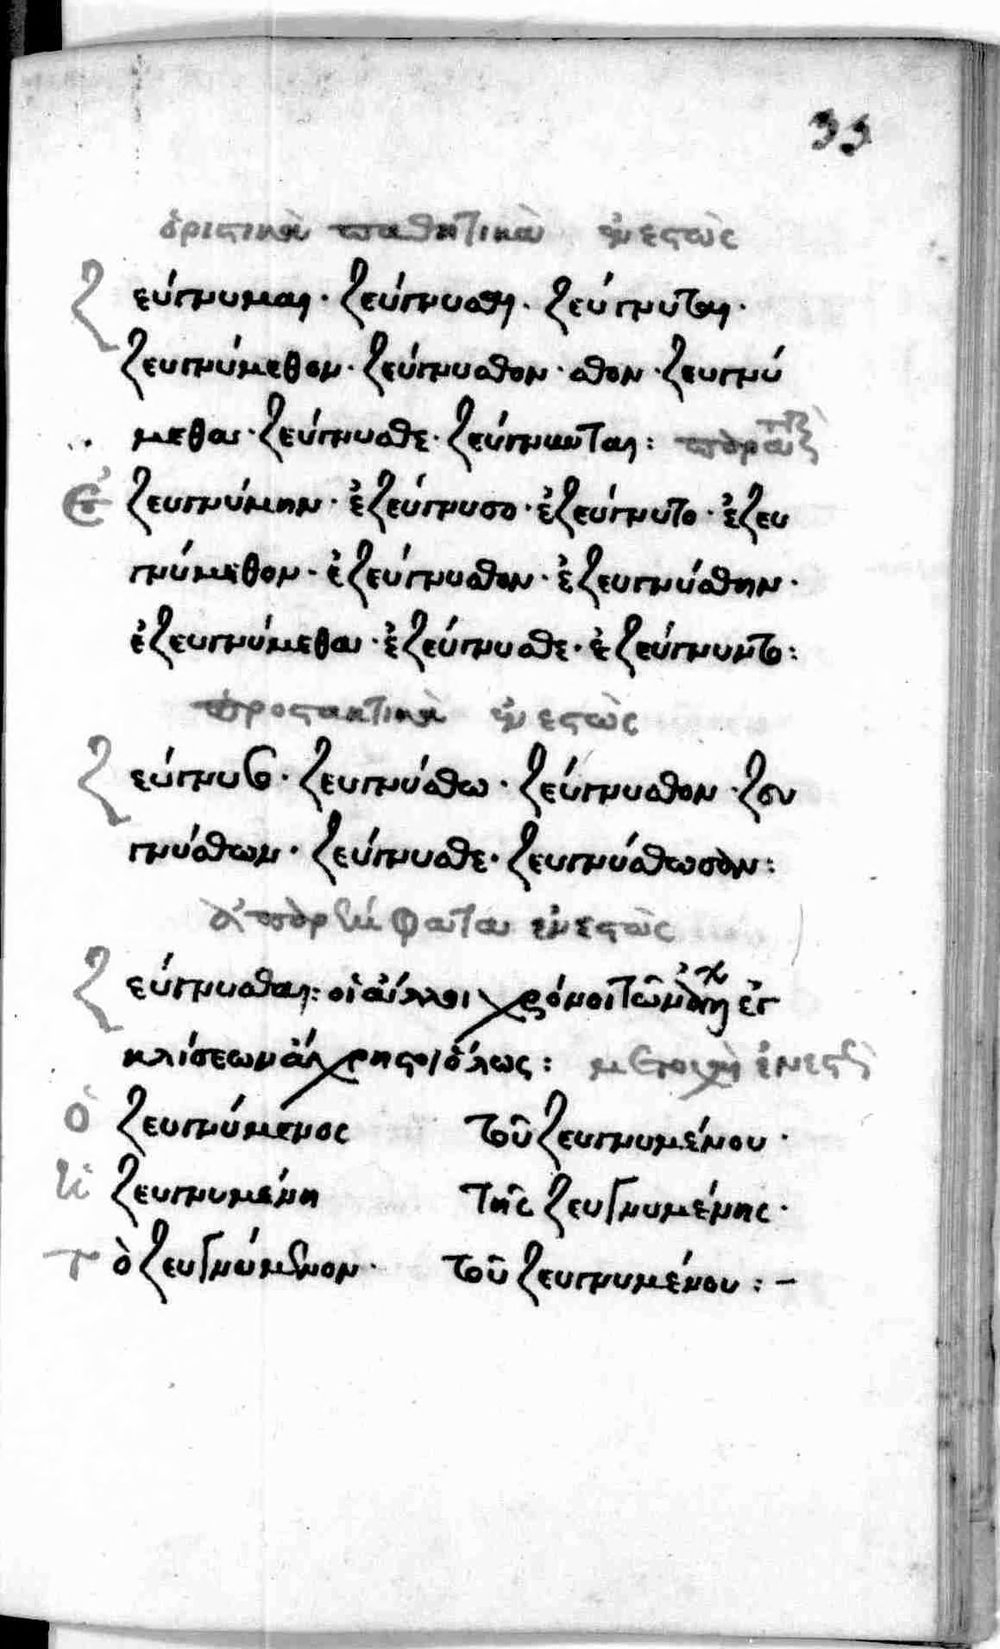 33
ὁριστικὰ παθητικὰ ἐνεστὼς
ζεύγνυμαι · ζεύγνυσαι · ζεύγνυται ·
ζευγνύμεθον · ζεύγνυσθον · σθον · ζευγνύ
μεθα · ζεύγνυσθε · ζεύγνυνται :
ἐζευγνύμην · ἐζεύγνυσο · ἐζεύγνυτο · ἐζευ
γνύμεθον · ἐζεύγνυσθον · ἐζευγνύσθην ·
ἐζευγνύμεθα · ἐζεύγνυσθε · ἐζεύγνυντο :
προστακτικὰ ἐνεστὼς
ζεύγνυσο · ζευγνύσθω · ζεύγνυσθον · ζευ
γνύσθων · ζεύγνυσθε · ζευγνύσθωσαν :
ἀπαρέμφατα ἐνεστὼς
ζεύγνυσθαι : οἱ ἄλλοι χρόνοι τῶν
κλίσεων ἄχρηστοι ὅλως : μετοχὴ ἐνεστὼς
ὁ ζευγνύμενος τοῦ ζευγνυμένου ·
ἡ ζευγνυμένη τῆς ζευγνυμένης ·
τὸ ζευγνύμενον · τοῦ ζευγνυμένου : –